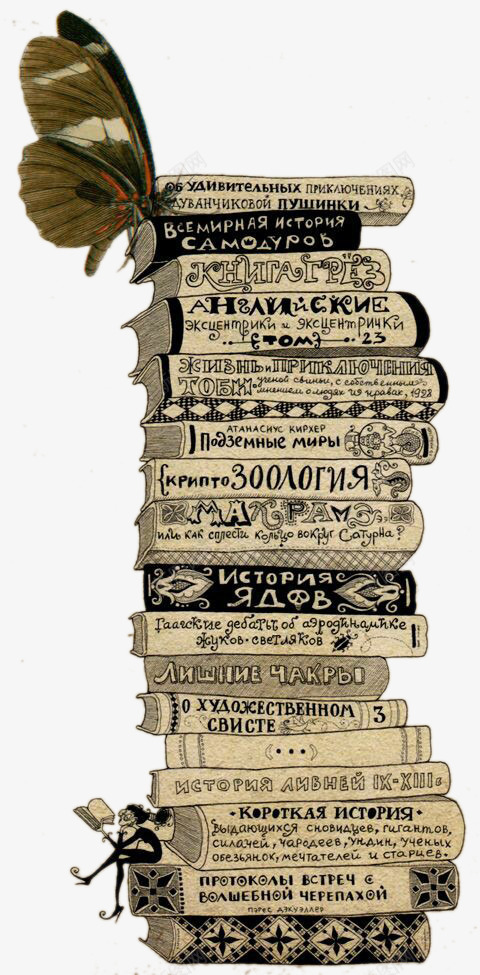 Об удивительных приключениях
одуванчиковой пушинки
Всемирная история
самодуров
Книга грёз
Английские
эксцентрики и эксцентрички
том 23
Жизнь и приключения
Тоби. ученой свиньи, с собственным
мнением о людях и нравах, 1998
Атанасиус Кирхер
Подземные миры
{крипто ЗООЛОГИЯ
Макраме,
или как сплести кольцо вокруг Сатурна?
История
ядов
Гаагские дебаты об аэродинамике
жуков-светляков
Лишние чакры
О художественном
свисте 3
(•••)
История ливней IX-XIII в
•Короткая история•
выдающихся сновидцев, гигантов,
силачей, чародеев, ундин, ученых
обезьянок, мечтателей и старцев.
Протоколы встреч с
волшебной черепахой